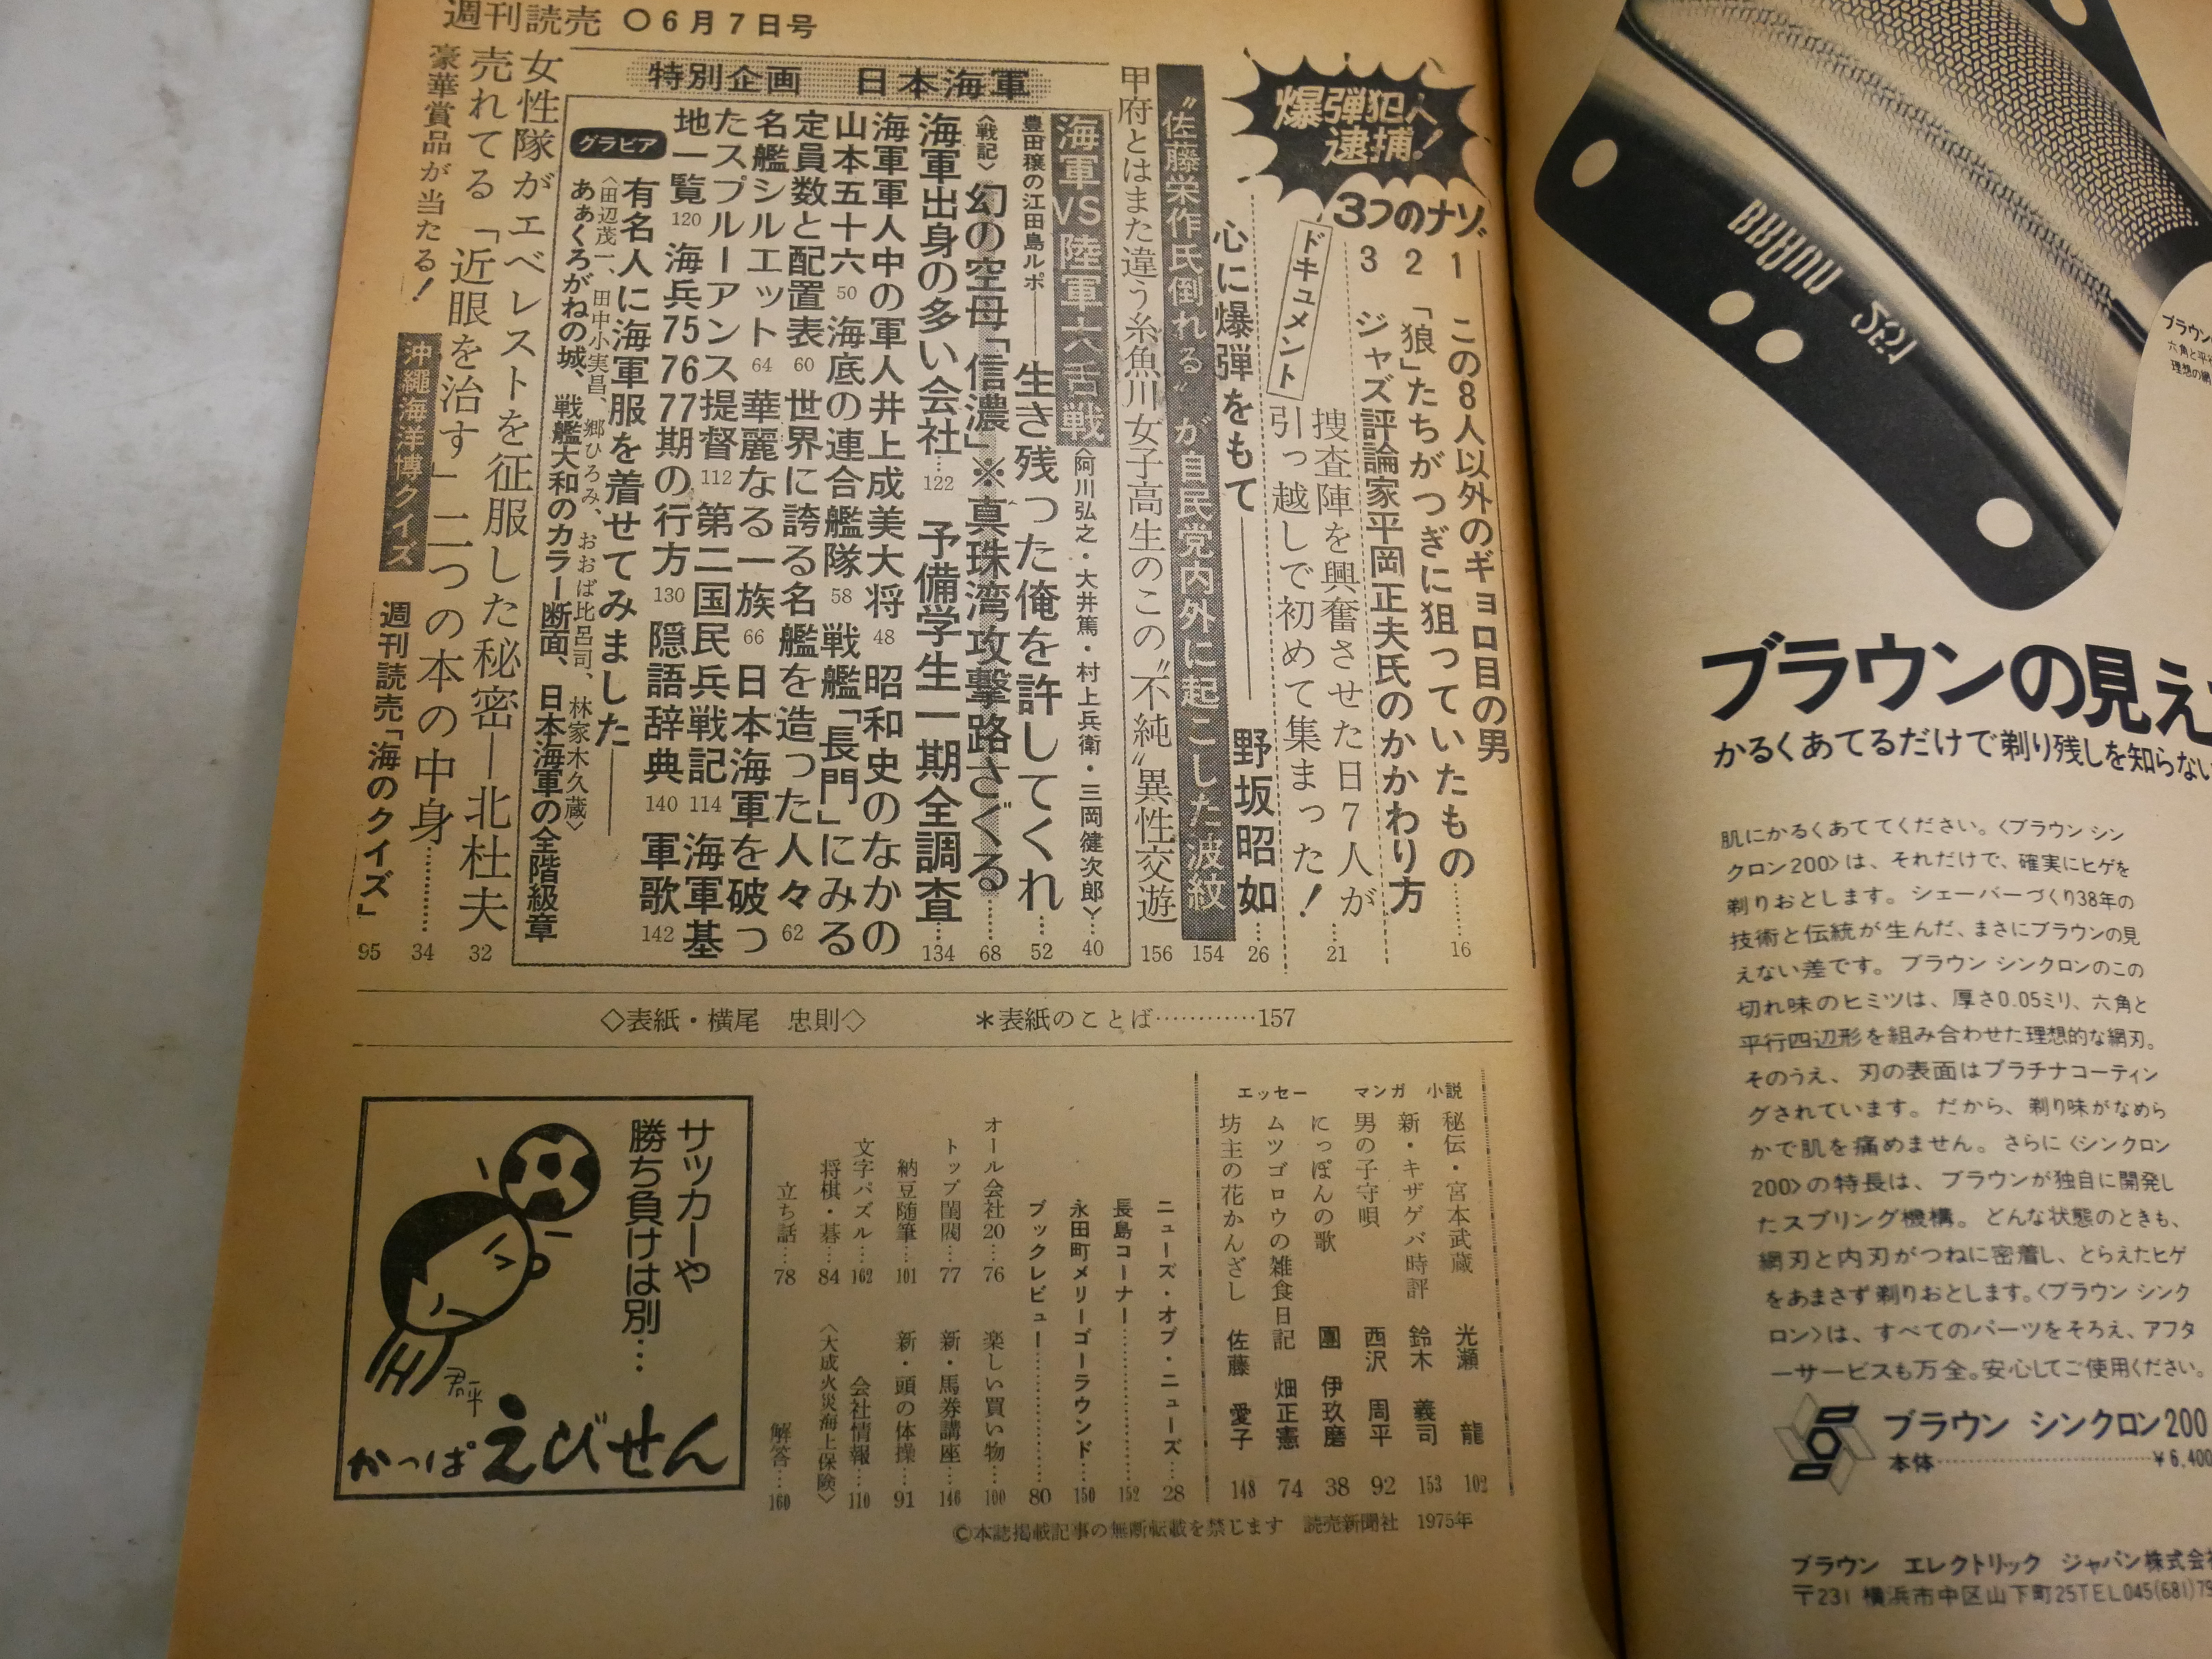 週刊読売 ○6月7日号
爆弾犯人
逮捕!
3つのナゾ
1 この8人以外のギョロ目の男
2 「狼」たちがつぎに狙っていたもの……16
3 ジャズ評論家平岡正夫氏のかかわり方
ドキュメント
捜査陣を興奮させた日7人が…21
引っ越しで初めて集まった!
心に爆弾をもて――野坂昭如…26
〝佐藤栄作氏倒れる〟が自民党内外に起こした波紋 154
甲府とはまた違う糸魚川女子高生のこの〝不純〟異性交遊 156
特別企画 日本海軍
海軍VS陸軍六舌戦〈阿川弘之・大井篤・村上兵衛・三岡健次郎〉…40
豊田穣の江田島ルポ――生き残った俺を許してくれ…52
〈戦記〉幻の空母「信濃」※真珠湾攻撃路さぐる……68
海軍出身の多い会社…122 予備学生一期全調査…134
海軍軍人中の軍人井上成美大将48 昭和史のなかの
山本五十六50 海底の連合艦隊58 戦艦「長門」にみる
定員数と配置表60 世界に誇る名艦を造った人々62
名艦シルエット64 華麗なる一族66 日本海軍を破っ
たスプルーアンス提督112 第二国民兵戦記114 海軍基
地一覧120 海兵75 76 77期の行方130 隠語辞典140 軍歌142
グラビア
有名人に海軍服を着せてみました――
〈田辺茂一、田中小実昌、郷ひろみ、おおば比呂司、林家木久蔵〉
あぁくろがねの城、戦艦大和のカラー断面、日本海軍の全階級章
女性隊がエベレストを征服した秘密―北杜夫 32
売れてる「近眼を治す」二つの本の中身………34
豪華賞品が当たる! 沖縄海洋博クイズ 週刊読売「海のクイズ」 95
◇表紙・横尾 忠則◇ *表紙のことば…………157
小説
秘伝・宮本武蔵 光瀬 龍 102
マンガ
新・キザゲバ時評 鈴木 義司 153
男の子守唄 西沢 周平 92
エッセー
にっぽんの歌 團 伊玖磨 38
ムツゴロウの雑食日記 畑正憲 74
坊主の花かんざし 佐藤 愛子 148
ニューズ・オブ・ニューズ…28
長島コーナー…………152
永田町メリーゴーラウンド…150
ブックレビュー…………80
オール会社20…76 楽しい買い物…100
トップ閨閥…77 新・馬券講座…146
納豆随筆…101 新・頭の体操…91
文字パズル…162 会社情報…110
将棋・碁…84 〈大成火災海上保険〉
立ち話…78 解答…160
©本誌掲載記事の無断転載を禁じます 読売新聞社 1975年
サッカーや
勝ち負けは別…
君平
かっぱえびせん
BRAUN
ブラウンの見え
かるくあてるだけで剃り残しを知らない
肌にかるくあててください。〈ブラウン シン
クロン200〉は、それだけで、確実にヒゲを
剃りおとします。シェーバーづくり38年の
技術と伝統が生んだ、まさにブラウンの見
えない差です。ブラウン シンクロンのこの
切れ味のヒミツは、厚さ0.05ミリ、六角と
平行四辺形を組み合わせた理想的な網刃。
そのうえ、刃の表面はプラチナコーティン
グされています。だから、剃り味がなめら
かで肌を痛めません。さらに〈シンクロン
200〉の特長は、ブラウンが独自に開発し
たスプリング機構。どんな状態のときも、
網刃と内刃がつねに密着し、とらえたヒゲ
をあまさず剃りおとします。〈ブラウン シンク
ロン〉は、すべてのパーツをそろえ、アフタ
ーサービスも万全。安心してご使用ください。
ブラウン シンクロン200
本体…………¥6,400
ブラウン エレクトリック ジャパン株式会社
〒231 横浜市中区山下町25TEL045(681)79